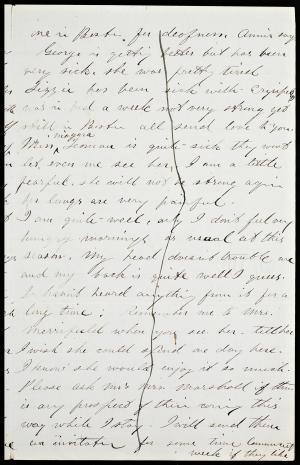 me in Boston for deafness Annie says
George is getting better but has been
very sick, she was pretty tired
Lizzie has been sick with Erysipelas
was in bed a week not very strong yet
still in Boston all send love to you.
Niagara
Miss Seaman is quite sick they wont
let even me see her, I am a little
fearful she will not be strong again
her lungs are very painful.
I am quite well, only I don't feel any
hungry mornings as usual at this
season. My head doesn't trouble me
and my back is quite well I guess.
I havn't heard anything from it for a
long time. Remember me to Mrs.
Merrifield when you see her. tell her
I wish she could spend one day here.
I know she would enjoy it so much.
Please ask Mrs. Marshall if there
is any prospect of their coming this
way while I stay. I will send them
an invitation for some time Communit
week if they like